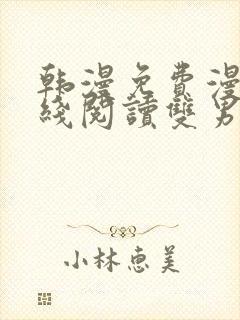 韩漫免费漫
线阅读雙男
小林惠美